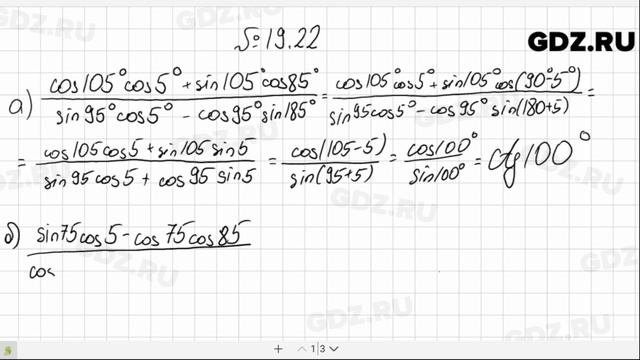 № 19.22
GDZ.RU
а) (cos105°cos5° + sin105°cos85°)/(sin95°cos5° - cos95°sin185°) = (cos105°cos5° + sin105°cos(90°-5°))/(sin95cos5° - cos95° sin(180+5)) =
= (cos105cos5 + sin105sin5)/(sin95cos5 + cos95sin5) = cos(105-5)/sin(95+5) = cos100°/sin100° = ctg100°
б) (sin75cos5 - cos75cos85)/(cos
+ 1|3